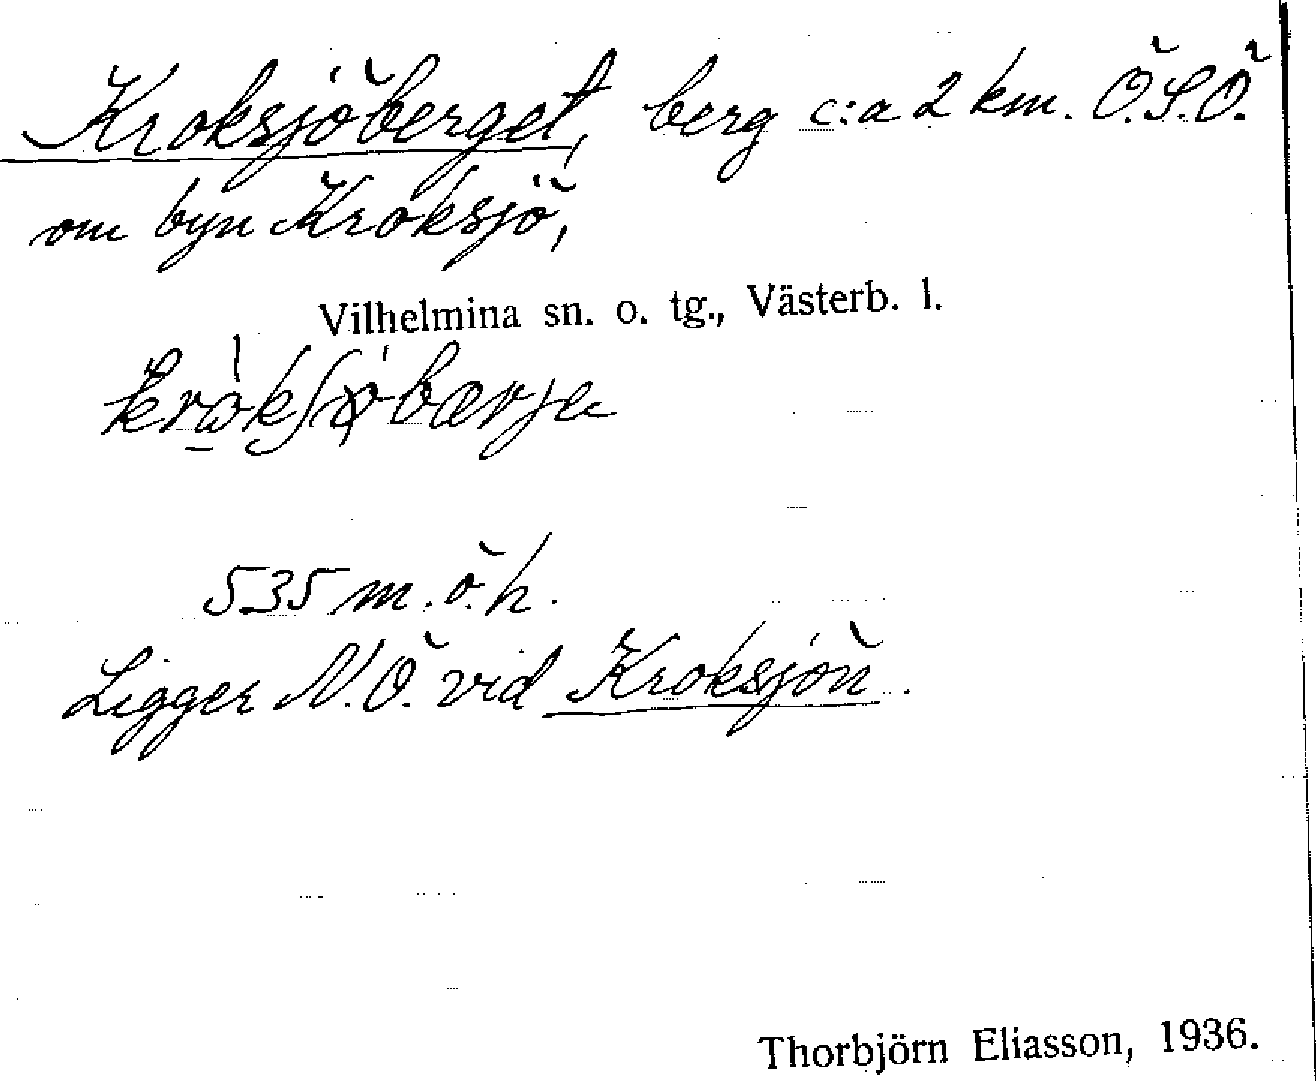 Kroksjöberget, berg c:a 2 km. Ö.S.Ö.
om byn Kroksjö,
Vilhelmina sn. o. tg., Västerb. l.
535 m.ö.h.
Ligger N.Ö. vid Kroksjön.
Thorbjörn Eliasson, 1936.